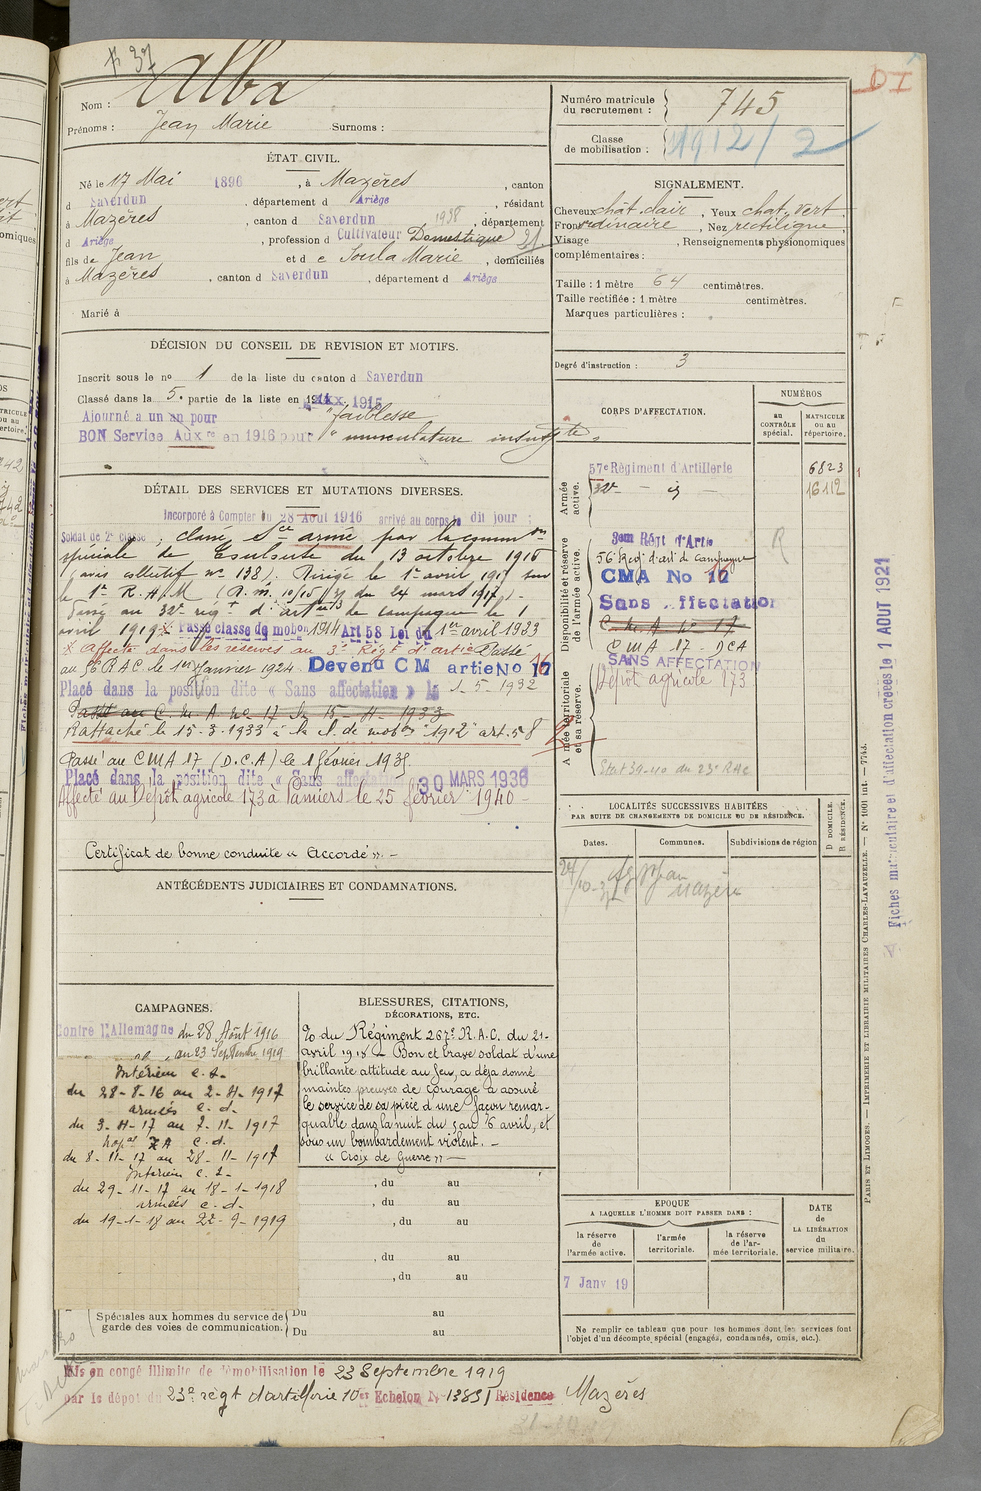 F 37
Nom : Alba
Prénoms : Jean Marie Surnoms :
ÉTAT CIVIL.
Né le 17 Mai 1896, à Mazères, canton
d Saverdun, département d Ariège, résidant
à Mazères, canton d Saverdun 1938, département
d Ariège, profession d Cultivateur Domestique 21
fils de Jean et d e Soula Marie, domiciliés
à Mazères, canton d Saverdun, département d Ariège
Marié à
DÉCISION DU CONSEIL DE REVISION ET MOTIFS.
Inscrit sous le no 1 de la liste du canton d Saverdun
Classé dans la 5e partie de la liste en 1915
Ajourné a un an pour "faiblesse
BON Service Aux re en 1916 pour "musculature insuffte.
DÉTAIL DES SERVICES ET MUTATIONS DIVERSES.
Incorporé à Compter du 28 Août 1916 arrivé au corps le dit jour ;
Soldat de 2e classe ; classé sce armé par la common
spéciale de Toulouse du 13 octobre 1916
(avis collectif no 138). Dirigé le 1er avril 1917 sur
le 1er R.A.M (D.m. 10/15 1/3 du 24 mars 1917).-
Passé au 32e régt d'artie de campagne le 1
avril 1919 x Passé classe de mobon 1914 Art 58 Loi du 1er avril 1923
x Affecté dans les réserves au 3e Régt d'artie Passé
au 56 RAC le 1er Janvier 1924. Devenu CM artie No 17 16
Placé dans la position dite « Sans affectation » le 1-5-1932
Passé au C. M. A. no 17 le 15-4-1933
Rattaché le 15-3-1933 à la cl. de mobon 1912 art. 58
Passé au CMA 17 (D.C.A) le 1 février 1935
Placé dans la position dite « Sans affectation 30 MARS 1936
Affecté au Dépôt agricole 173 à Pamiers le 25 février 1940 -
Certificat de bonne conduite « Accordé ». -
ANTÉCÉDENTS JUDICIAIRES ET CONDAMNATIONS.
CAMPAGNES.
Contre l'Allemagne du 28 Août 1916
au 23 Septembre 1919
Intérieur C.S-
du 28-8-16 au 2-4-1917
armées C.d-
du 3-4-17 au 7-11-1917
hopal ZA C.d.
du 8-11-17 au 28-11-1917
Intérieur C.S-
du 29-11-17 au 18-1-1918
armées C-d-
du 19-1-18 au 22-9-1919
Spéciales aux hommes du service de
garde des voies de communication.
BLESSURES, CITATIONS,
DÉCORATIONS, ETC.
O/o du Régiment 267e R.A.C. du 21-
avril 1918 - Bon et brave soldat d'une
brillante attitude au feu, a déjà donné
maintes preuves de courage a assuré
le service de sa pièce d'une façon remar-
quable dans la nuit du 5 au 6 avril, et
sous un bombardement violent. -
« Croix de Guerre » -
, du au
, du au
, du au
, du au
, du au
Du au
Du au
Mis en congé illimité de démobilisation le 23 Septembre 1919
par le dépôt du 23e régt d'artillerie 10er Echelon No 13831 Résidence Mazères
Numéro matricule
du recrutement : 745
Classe
de mobilisation : 1912/2
SIGNALEMENT.
Cheveux chât. clair, Yeux chat. vert.
Front ordinaire, Nez rectiligne,
Visage , Renseignements physionomiques
complémentaires :
Taille : 1 mètre 64 centimètres.
Taille rectifiée : 1 mètre centimètres.
Marques particulières :
Degré d'instruction : 3
CORPS D'AFFECTATION.
NUMÉROS
au
CONTRÔLE
spécial.
MATRICULE
ou au
répertoire.
Armée
active.
57e Régiment d'Artillerie 6823
32e - id 16112
Disponibilité et réserve
de l'armée active.
3em Régt d'Artie
56 Régt d'art de campagne R
CMA No 17 16
Sans Affectation
C. M. A no 17
CMA 17 - DCA
Armée territoriale
et sa réserve.
SANS AFFECTATION
Dépôt agricole 173
Stat 39-40 du 23e RAC
LOCALITÉS SUCCESSIVES HABITÉES
PAR SUITE DE CHANGEMENTS DE DOMICILE OU DE RÉSIDENCE.
Dates. Communes. Subdivisions de région
D DOMICILE.
R RÉSIDENCE.
Mazères
EPOQUE
A LAQUELLE L'HOMME DOIT PASSER DANS :
la réserve
de
l'armée active.
l'armée
territoriale.
la réserve
de l'ar-
mée territoriale.
DATE
de
LA LIBÉRATION
du
service militaire.
7 Janv 19
Ne remplir ce tableau que pour les hommes dont les services font
l'objet d'un décompte spécial (engagés, condamnés, omis, etc.).
PARIS ET LIMOGES. — IMPRIMERIE ET LIBRAIRIE MILITAIRES CHARLES-LAVAUZELLE. — No 1001 int. — 7743.
Fiches matriculaire et d'affectation créées le 1 AOUT 1921